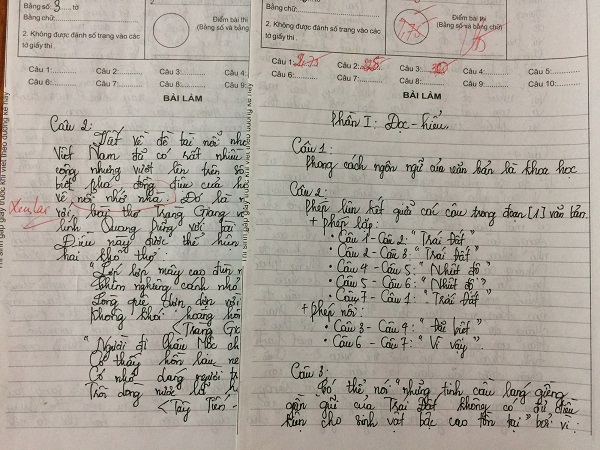 Bằng số: 3 tờ
Bằng chữ:
2. Không được đánh số trang vào các
tờ giấy thi.
Câu 1: Câu 2: Câu 3: Câu 4:
Câu 6: Câu 7: Câu 8: Câu 9:
BÀI LÀM
Câu 2:
Viết về đề tài nỗi nhớ
Việt Nam đã có rất nhiều
công nhưng vượt lên trên số
về nỗi nhớ nhà. Đó là
với bài thơ Tràng Giang
lính Quang Dũng với bài
Điều này được thể hiện
hai khổ thơ:
"Lớp lớp mây cao đùn
Chim nghiêng cánh nhỏ
Lòng quê dợn dợn với
Không khói hoàng hôn
"Người đi Châu Mộc
Có thấy hồn lau
Có nhớ dáng người
Trôi dòng nước lũ
<Tây Tiến
Thí sinh gấp giấy trước khi viết theo đường kẻ này
Bằng chữ:
2. Không được đánh số trang vào các
tờ giấy thi.
Điểm bài thi
(Bằng số và bằng chữ)
Câu 1: Câu 2: Câu 3: Câu 4: Câu 5:
Câu 6: Câu 7: Câu 8: Câu 9: Câu 10:
BÀI LÀM
Phần I: Đọc-hiểu.
Câu 1:
Phong cách ngôn ngữ của văn bản là khoa học
Câu 2:
Phép liên kết giữa các câu trong đoạn [1] văn bản.
+ phép lặp:
• Câu 1 - Câu 2: "Trái Đất"
• Câu 2 - Câu 3: "Trái Đất"
• Câu 4 - Câu 5: "Nhiệt độ"
• Câu 5 - Câu 6: "Nhiệt độ"
• Câu 7 - Câu 1: "Trái Đất"
+ phép nối:
• Câu 3 - Câu 4: "
• Câu 6 - Câu 7: "Vì vậy"
Câu 3:
Có thể nói "những tinh cầu láng giềng
gần gũi của Trái Đất không có đủ điều
kiện cho sinh vật bậc cao tồn tại" bởi vì: